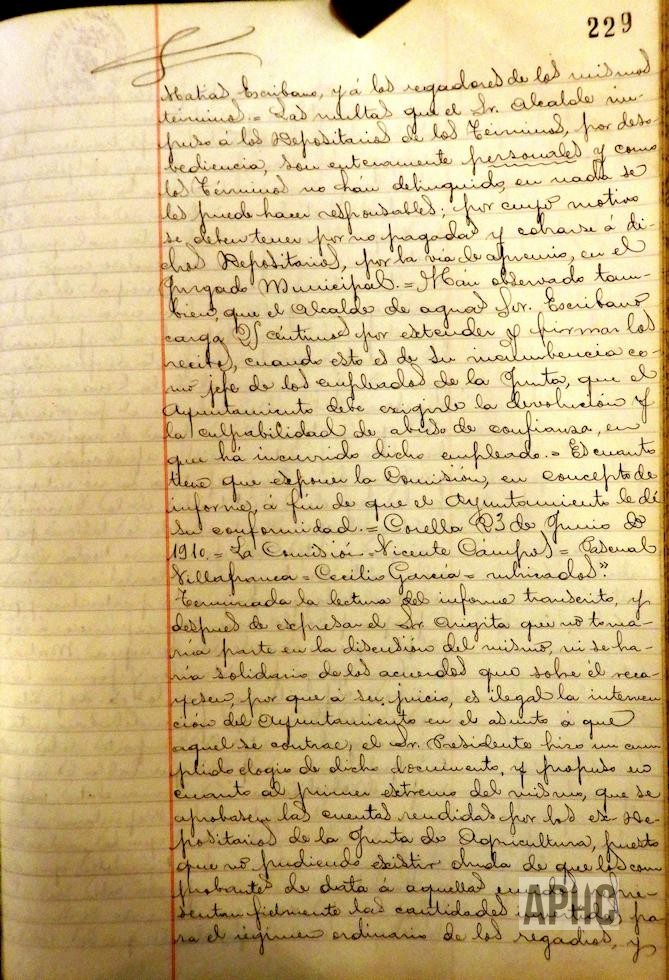 229
Matías Escribano, y á los regadores de los mismos
términos.= Las multas que el Sr. Alcalde im-
puso á los Depositarios de los Términos, por deso-
bediencia, son enteramente personales y como
los Términos no hán delinquido, en nada se
les puede hacer responsables; por cuyo motivo
se deben tener por no pagadas y cobrarse á di-
chos Depositarios, por la vía de apremio, en el
Juzgado Municipal.= Hán observado tam-
bien, que el Alcalde de aguas Sr. Escribano
carga 25 céntimos por estender y firmar los
recibos, cuando esto es de su incumbencia co-
mo jefe de los empleados de la Junta, que el
Ayuntamiento debe exigirle la devolución y
la culpabilidad de abuso de confianza, en
que há incurrido dicho empleado.= Es cuanto
tiene que esponer la Comisión, en concepto de
informe, á fin de que el Ayuntamiento le dé
su conformidad.= Corella 23 de Junio de
1910.= La Comisión= Vicente Cámpos= Pascual
Villafranca= Cecilio García= rubricados."
Terminada la lectura del informe transcrito, y
despues de expresar el Sr. Arigita que no toma-
ría parte en la discusión del mismo, ni se ha-
ría solidario de los acuerdos que sobre él reca-
yesen, por que á su juicio, es ilegal la interven-
ción del Ayuntamiento en el asunto á que
aquel se contrae, el Sr. Presidente hizo un cum-
plido elogio de dicho documento, y propuso en
cuanto al primer estremo del mismo, que se
aprobasen las cuentas rendidas por los ex-De-
positarios de la Junta de Agricultura, puesto
que no pudiendo existir duda de que los com-
probantes de data á aquellas unidos repre-
sentan fielmente las cantidades invertidas pa-
ra el régimen ordinario de los regadíos, y
APHC